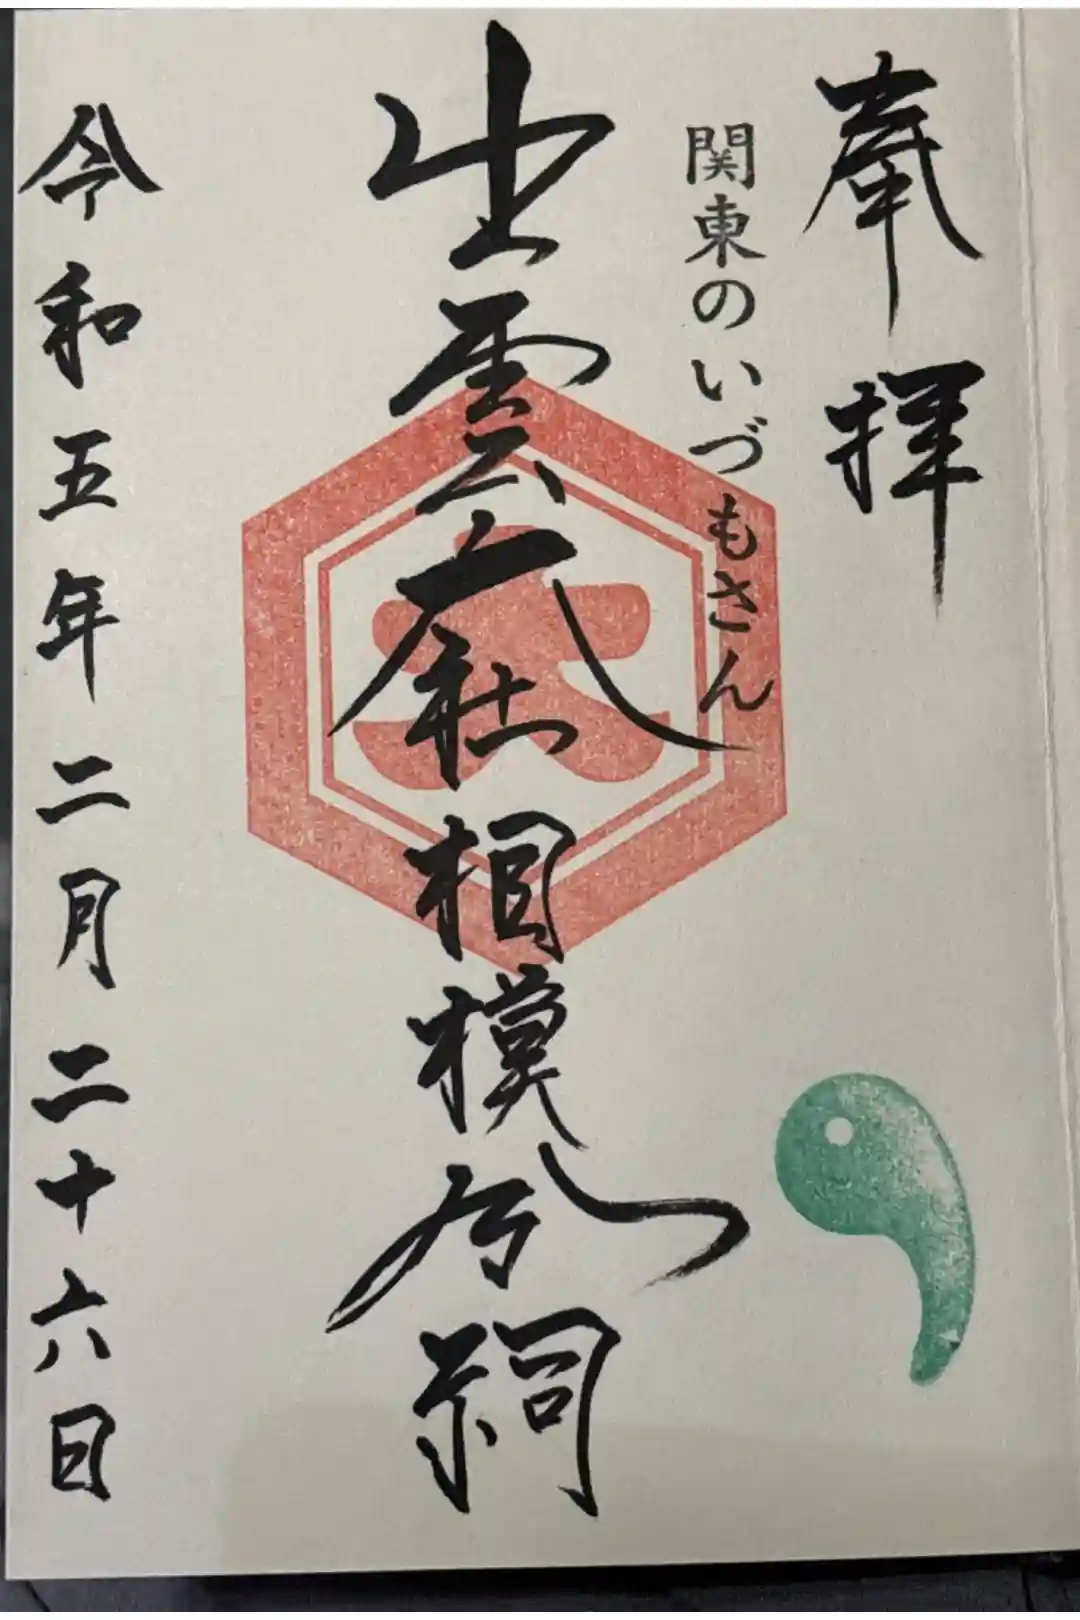 奉拝
関東のいづもさん
出雲大社相模分祠
大
令和五年二月二十六日